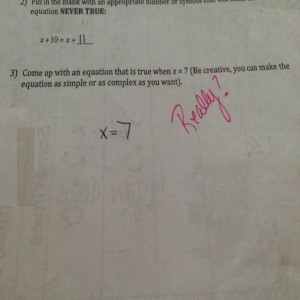 2) Fill in the blank with an appropriate number or symbol that will make
equation NEVER TRUE:
z + 10 = z + 11
3) Come up with an equation that is true when x = 7 (Be creative, you can make the
equation as simple or as complex as you want).
x = 7
Really?